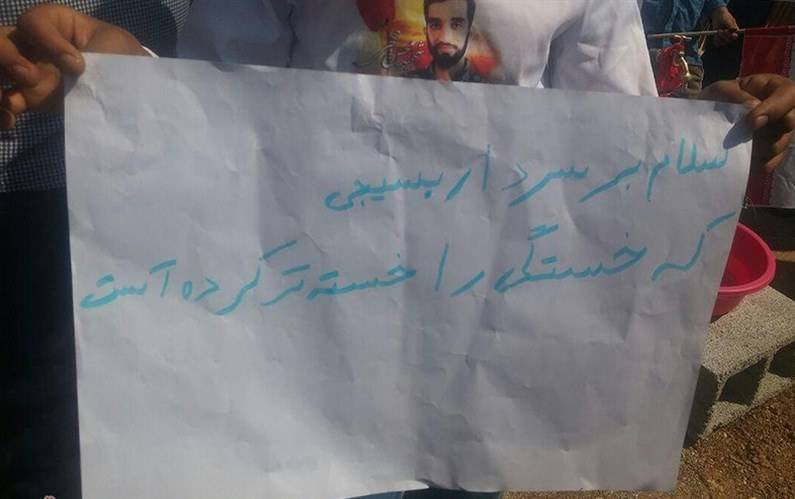 سلام بر سردار بسیجی
که خستگی را خسته تر کرده است